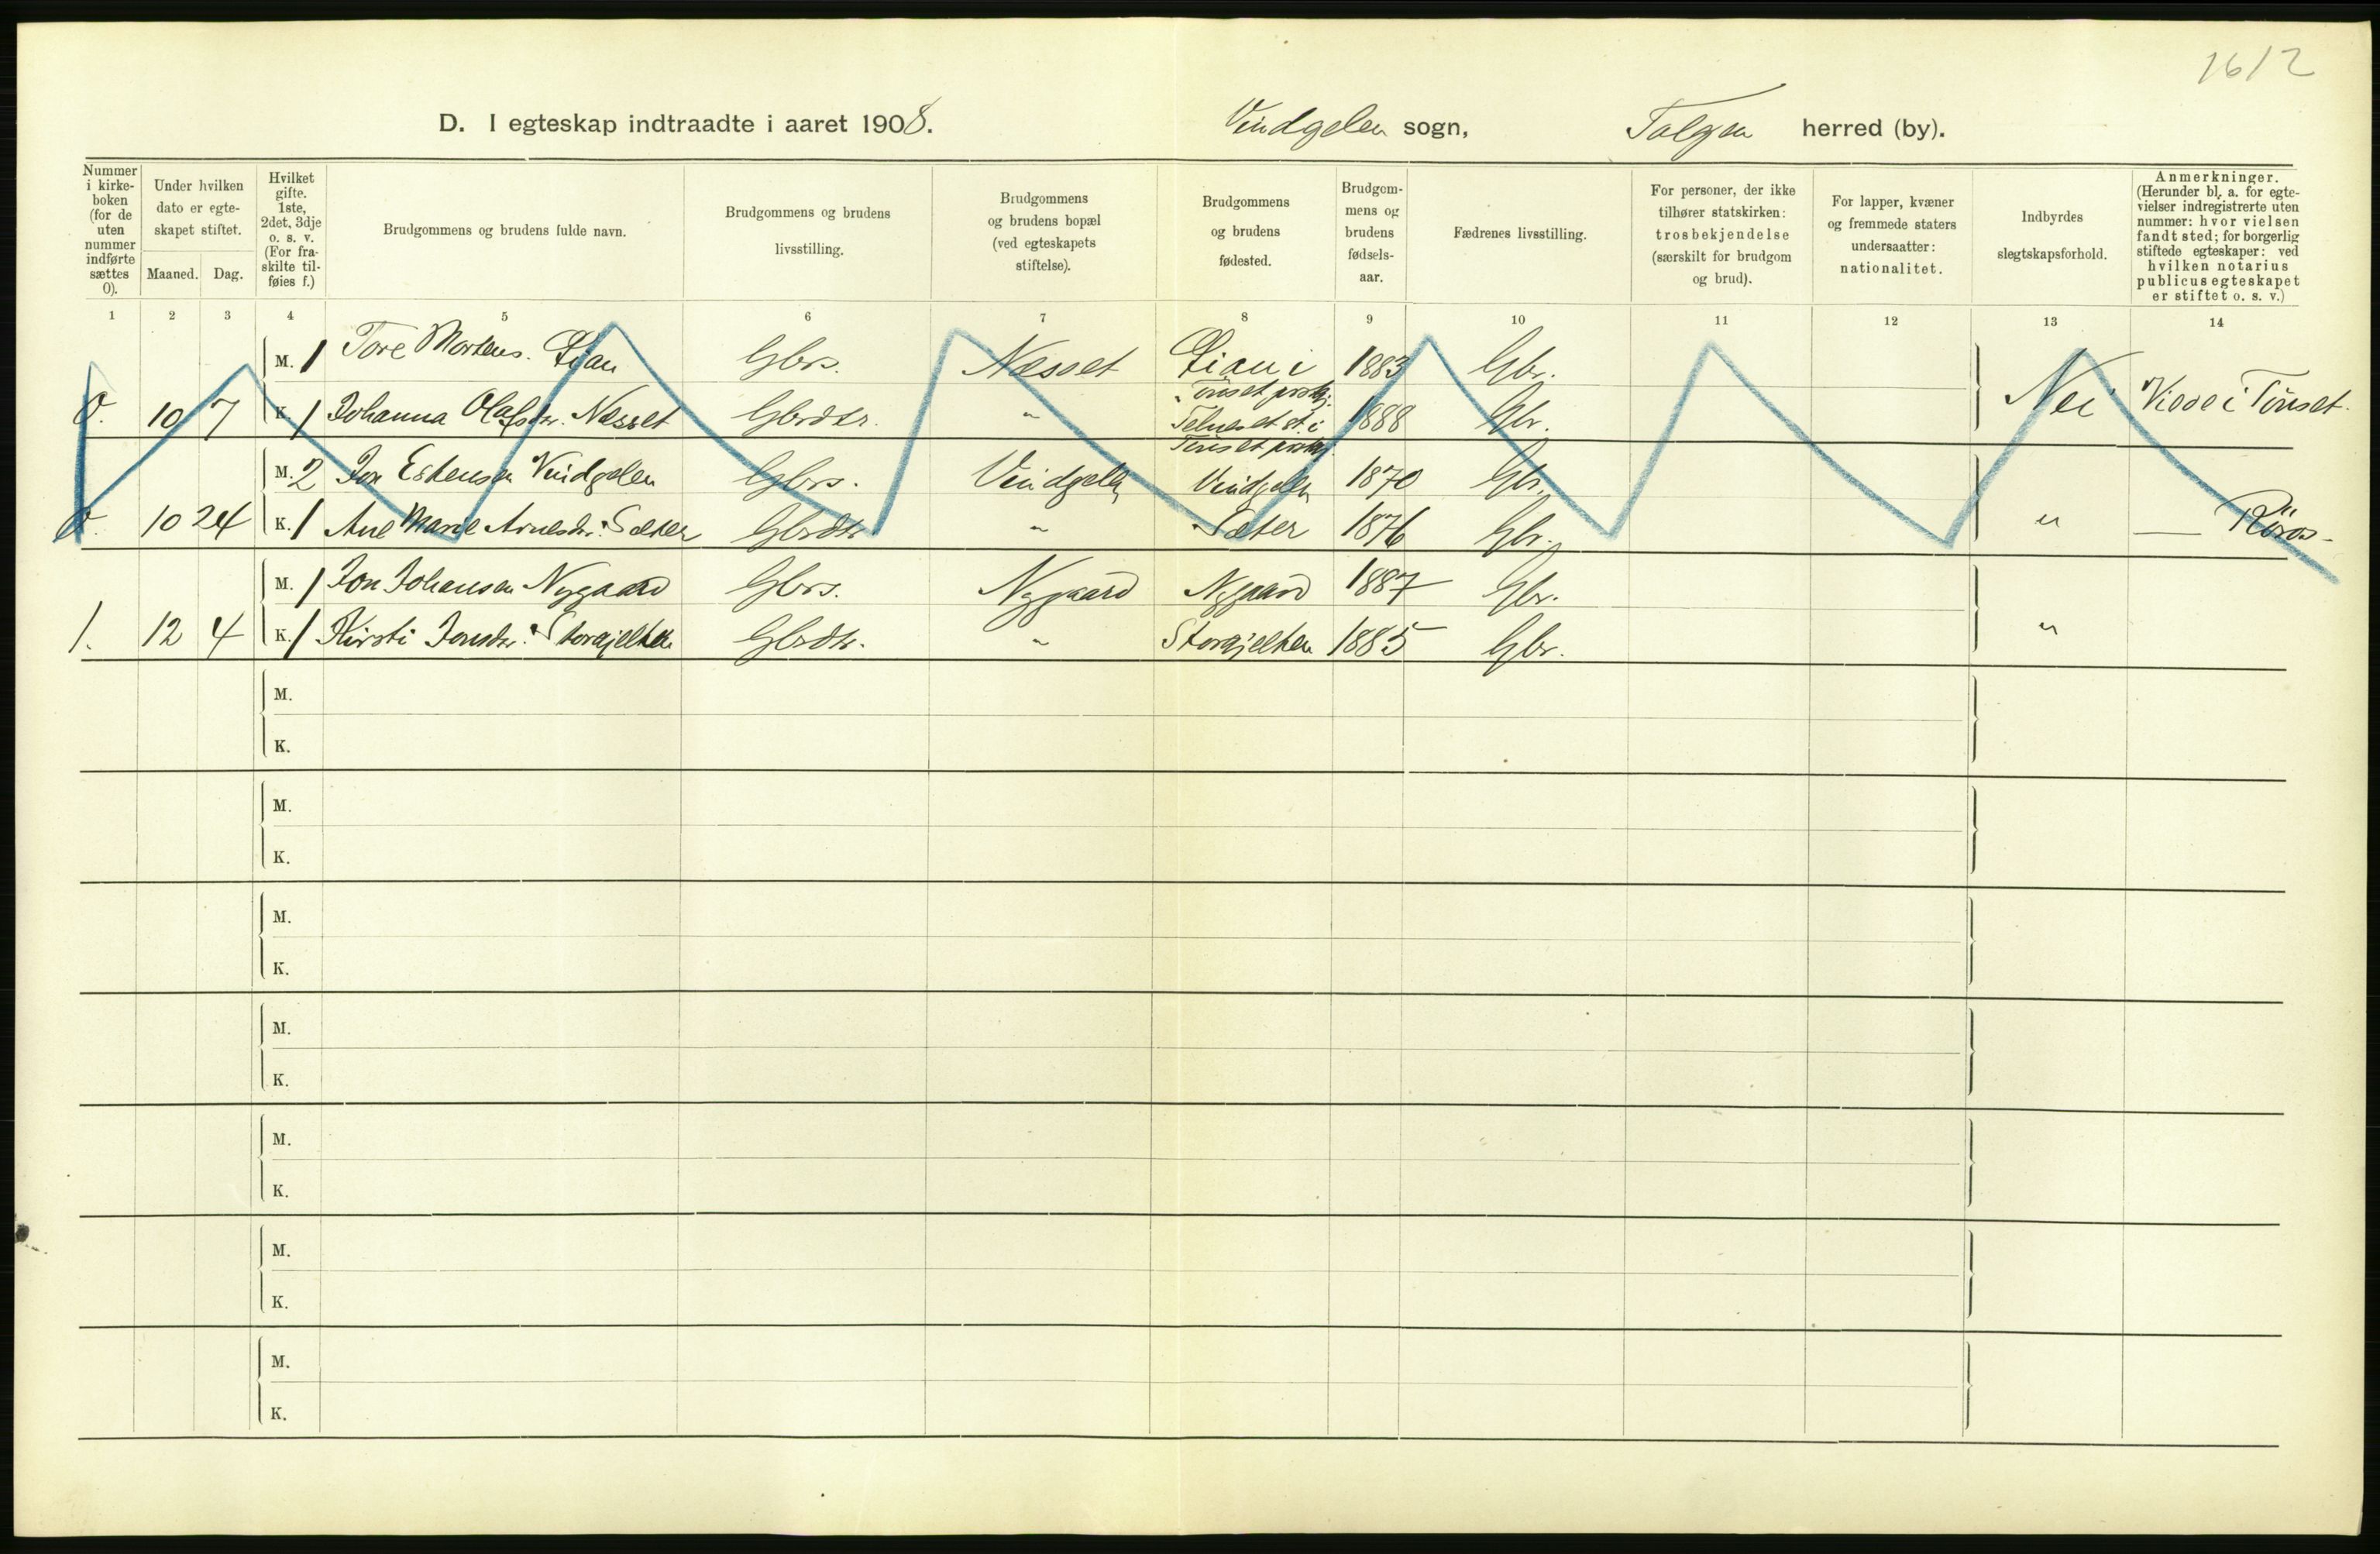 1612
D. I egteskap indtraadte i aaret 1908. Vindgelen sogn, Tolgen herred (by).
Nummer i kirke- boken (for de uten nummer indførte sættes 0).
Under hvilken dato er egte- skapet stiftet.
Maaned. Dag.
Hvilket gifte. 1ste, 2det, 3dje o. s. v. (For fra- skilte til- føies f.)
Brudgommens og brudens fulde navn.
Brudgommens og brudens livsstilling.
Brudgommens og brudens bopæl (ved egteskapets stiftelse).
Brudgommens og brudens fødested.
Brudgom- mens og brudens fødsels- aar.
Fædrenes livsstilling.
For personer, der ikke tilhører statskirken: trosbekjendelse (særskilt for brudgom og brud).
For lapper, kvæner og fremmede staters undersaatter: nationalitet.
Indbyrdes slegtskapsforhold.
Anmerkninger. (Herunder bl. a. for egte- vielser indregistrerte uten nummer: hvor vielsen fandt sted; for borgerlig stiftede egteskaper: ved hvilken notarius publicus egteskapet er stiftet o. s. v.)
1 2 3 4 5 6 7 8 9 10 11 12 13 14
M. 1 Tore Mortens. Lian Gbrs. Næsset Lian i Tönset prstgj. 1883 Gbr.
0. 10 7 K. 1 Johanna Olafsdtr. Næsset Gbrdtr. " Telneset st. i Tönset prstgj. 1888 Gbr. Nei Viede i Tönset.
M. 2 Jon Estensen Vindgelen Gbrs. Vindgelen Vindgelen 1870 Gbr.
0. 10 24 K. 1 Ane Marie Arnesdtr. Sæter Gbrdtr. " Sæter 1876 Gbr. " — Röros-
M. 1 Jon Johansen Nygaard Gbrs. Nygaard Nygaard 1887 Gbr.
1. 12 4 K. 1 Kirsti Jonsdtr. Storajelten Gbrdtr. " Storajelten 1885 Gbr. "
M.
K.
M.
K.
M.
K.
M.
K.
M.
K.
M.
K.
M.
K.